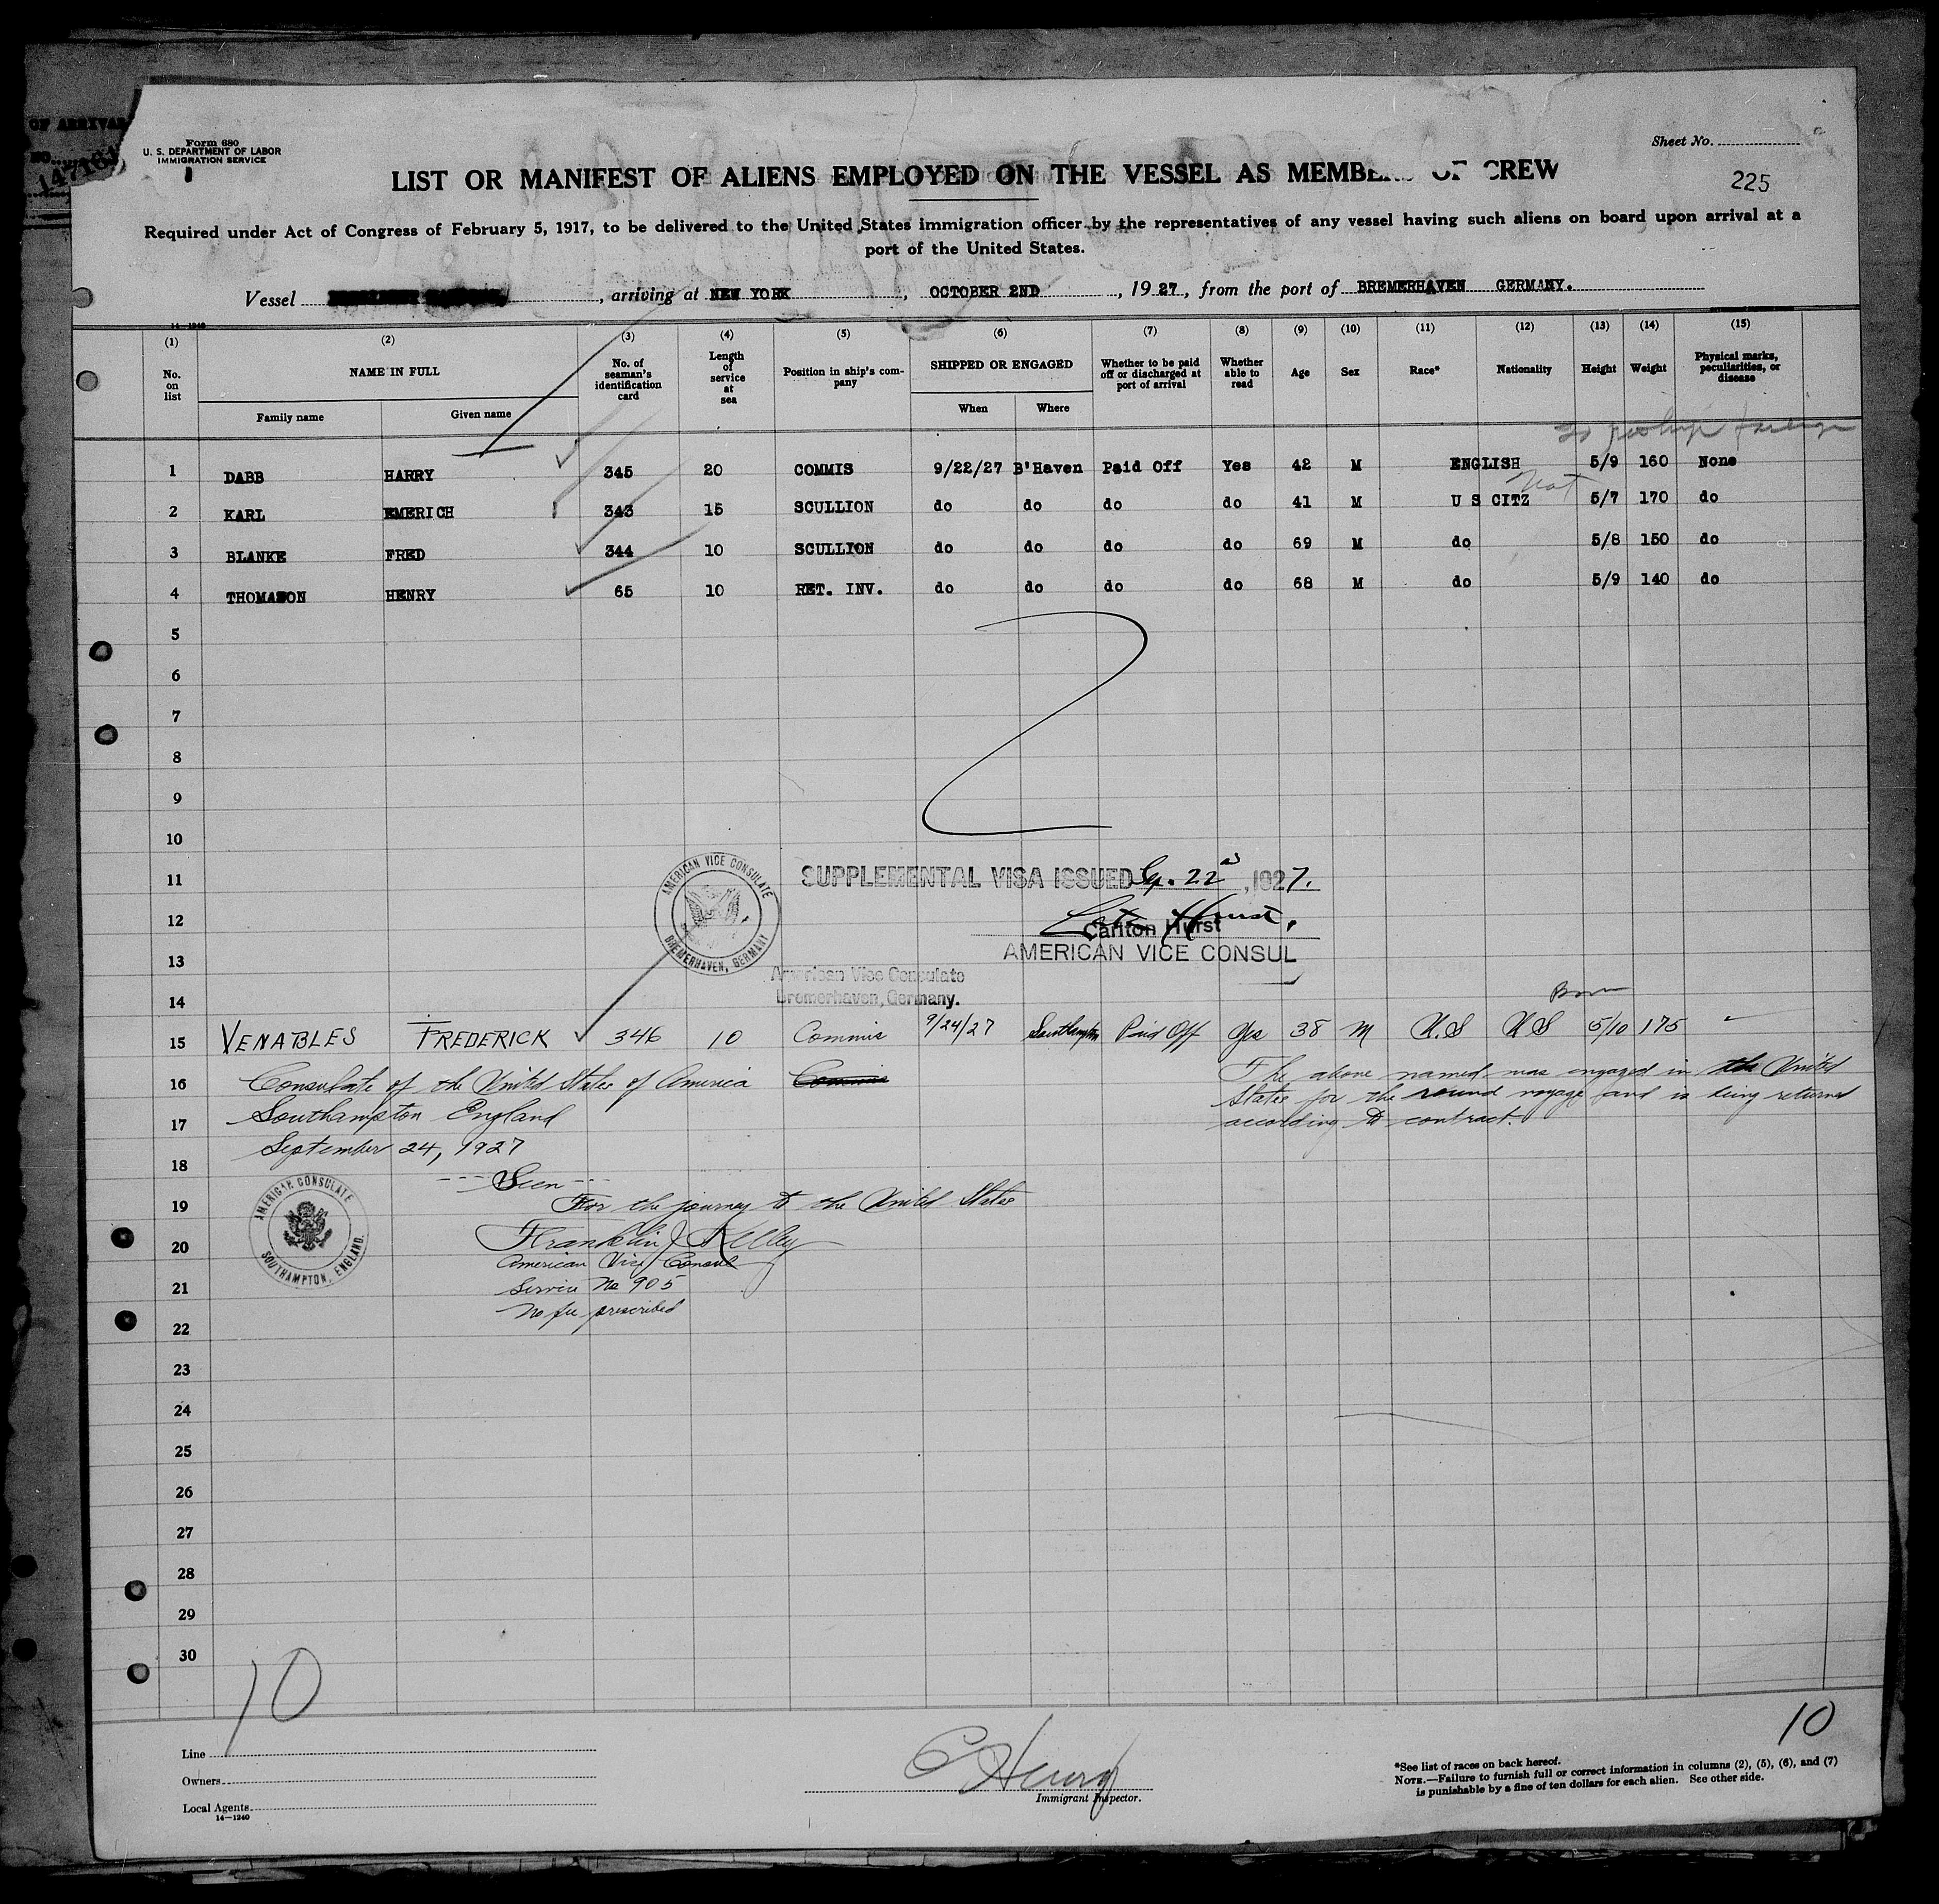 OF ARRIVAL
NO.
14716
Form 680
U. S. DEPARTMENT OF LABOR
IMMIGRATION SERVICE
Sheet No.
LIST OR MANIFEST OF ALIENS EMPLOYED ON THE VESSEL AS MEMBE OF CREW
225
Required under Act of Congress of February 5, 1917, to be delivered to the United States immigration officer by the representatives of any vessel having such aliens on board upon arrival at a
port of the United States.
Vessel , arriving at NEW YORK , OCTOBER 2ND , 1927, from the port of BREMERHAVEN GERMANY.
14-1240
(1) (2) (3) (4) (5) (6) (7) (8) (9) (10) (11) (12) (13) (14) (15)
No. on list
NAME IN FULL
Family name Given name
No. of seaman's identification card
Length of service at sea
Position in ship's company
SHIPPED OR ENGAGED
When Where
Whether to be paid off or discharged at port of arrival
Whether able to read
Age
Sex
Race*
Nationality
Height
Weight
Physical marks, peculiarities, or disease
1 DABB HARRY 345 20 COMMIS 9/22/27 B'Haven Paid Off Yes 42 M ENGLISH 5/9 160 None
2 KARL EMERICH 343 15 SCULLION do do do do 41 M U S CITZ 5/7 170 do
Nat
3 BLANKE FRED 344 10 SCULLION do do do do 69 M do 5/8 150 do
4 THOMASON HENRY 65 10 RET. INV. do do do do 68 M do 5/9 140 do
5
6
7
8
9
10
11
12
13
14
AMERICAN VICE CONSULATE
BREMERHAVEN, GERMANY
SUPPLEMENTAL VISA ISSUED Sep. 22d, 1927.
Carlton Hurst
AMERICAN VICE CONSUL
American Vice Consulate
Bremerhaven, Germany.
Born
15 VENABLES FREDERICK 346 10 Commis 9/24/27 Southampton Paid Off Yes 38 M U.S U S 5/10 175 "
16 Consulate of the United States of America Commis
The above named was engaged in the United
States for the round voyage and is being returned
according to contract.
17 Southampton England
18 September 24, 1927
--- Seen ---
19 For the journey to the United States
20 Franklin J Kelley
American Vice Consul
21 Service No 905
No fee prescribed
AMERICAN CONSULATE
SOUTHAMPTON, ENGLAND.
22
23
24
25
26
27
28
29
30
10
10
Line
Owners
Local Agents
14-1240
C Henry
Immigrant Inspector.
*See list of races on back hereof.
NOTE.—Failure to furnish full or correct information in columns (2), (5), (6), and (7)
is punishable by a fine of ten dollars for each alien. See other side.